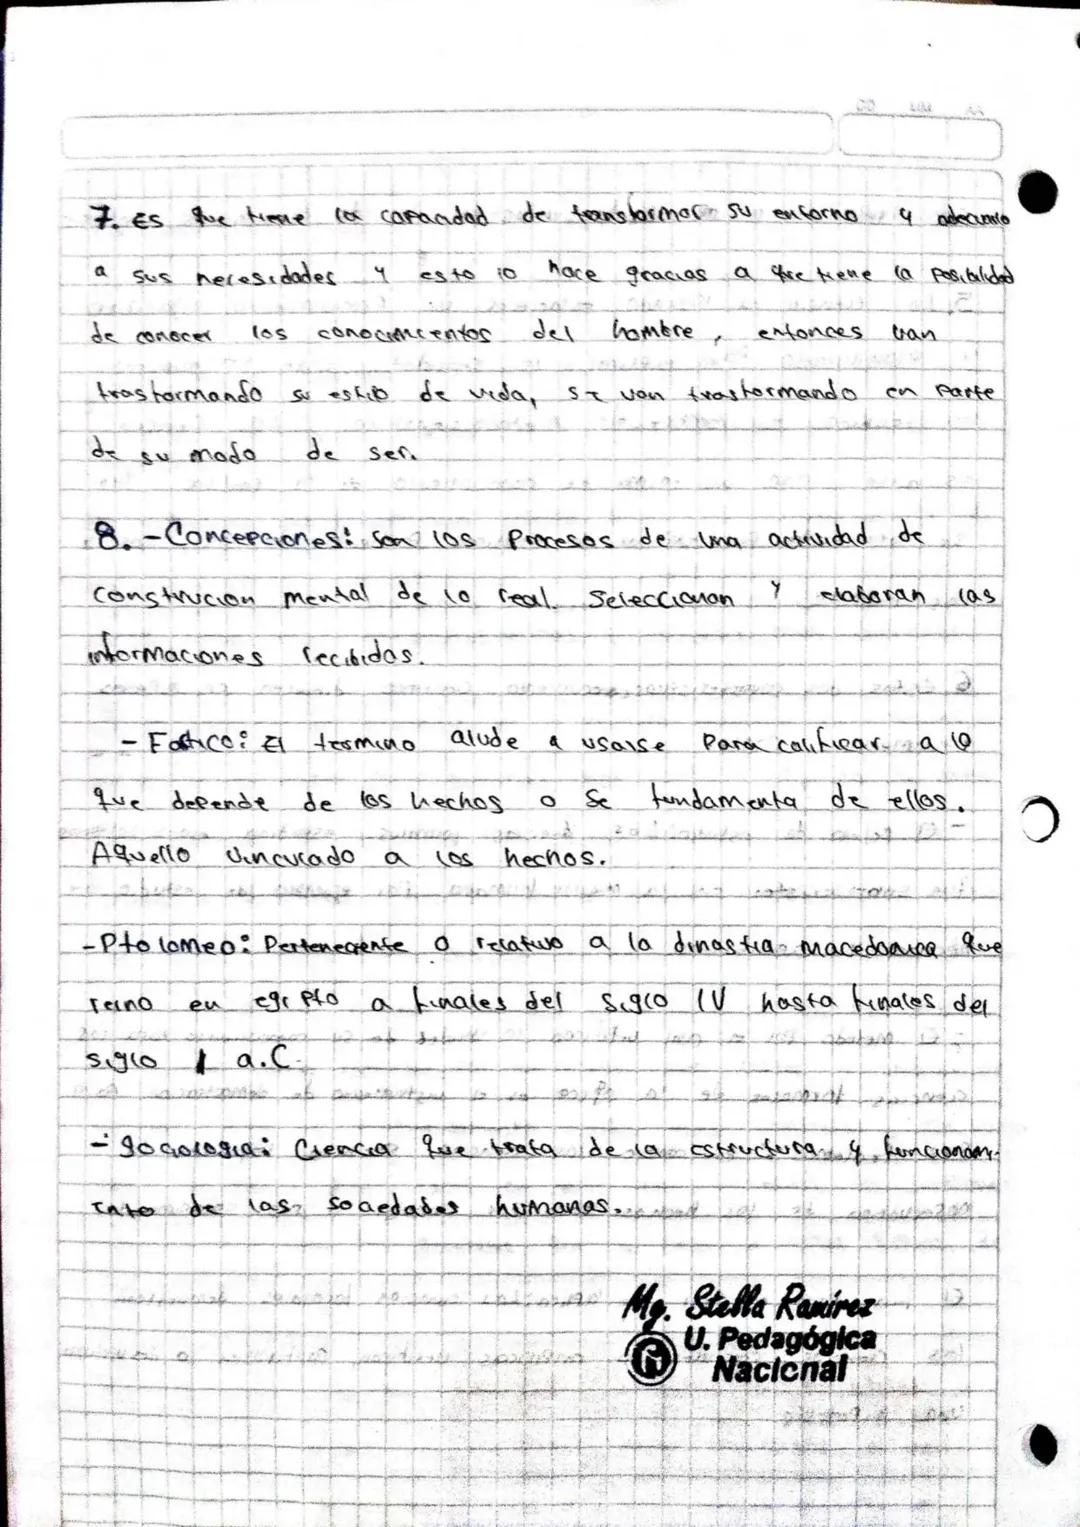 7. Es que tiene la capacidad de transformar su entorno y adecuarlo
a sus necesidades y esto lo hace gracias a que tiene la posibilidad
de conocer los conocimientos del hombre, entonces van
trasformando su estilo de vida, se van trasformando en parte
de su modo de ser.
8. - Concepciones: Son los procesos de una actividad de
construcion mental de lo real. Seleccionan y elaboran las
informaciones recibidas.
- Factico: El termino alude a usarse para calificar a lo
que depende de los hechos o se fundamenta de ellos.
Aquello vinculado a los hechos.
- Ptolomeo: Perteneciente o relativo a la dinastia macedonica que
reino en egipto a finales del siglo IV hasta finales del
siglo I a.C.
- Sociologia: Ciencia que trata de la estructura y funcionami-
ento de las sociedades humanas.
Mg. Stella Ramírez
U. Pedagógica
Nacional